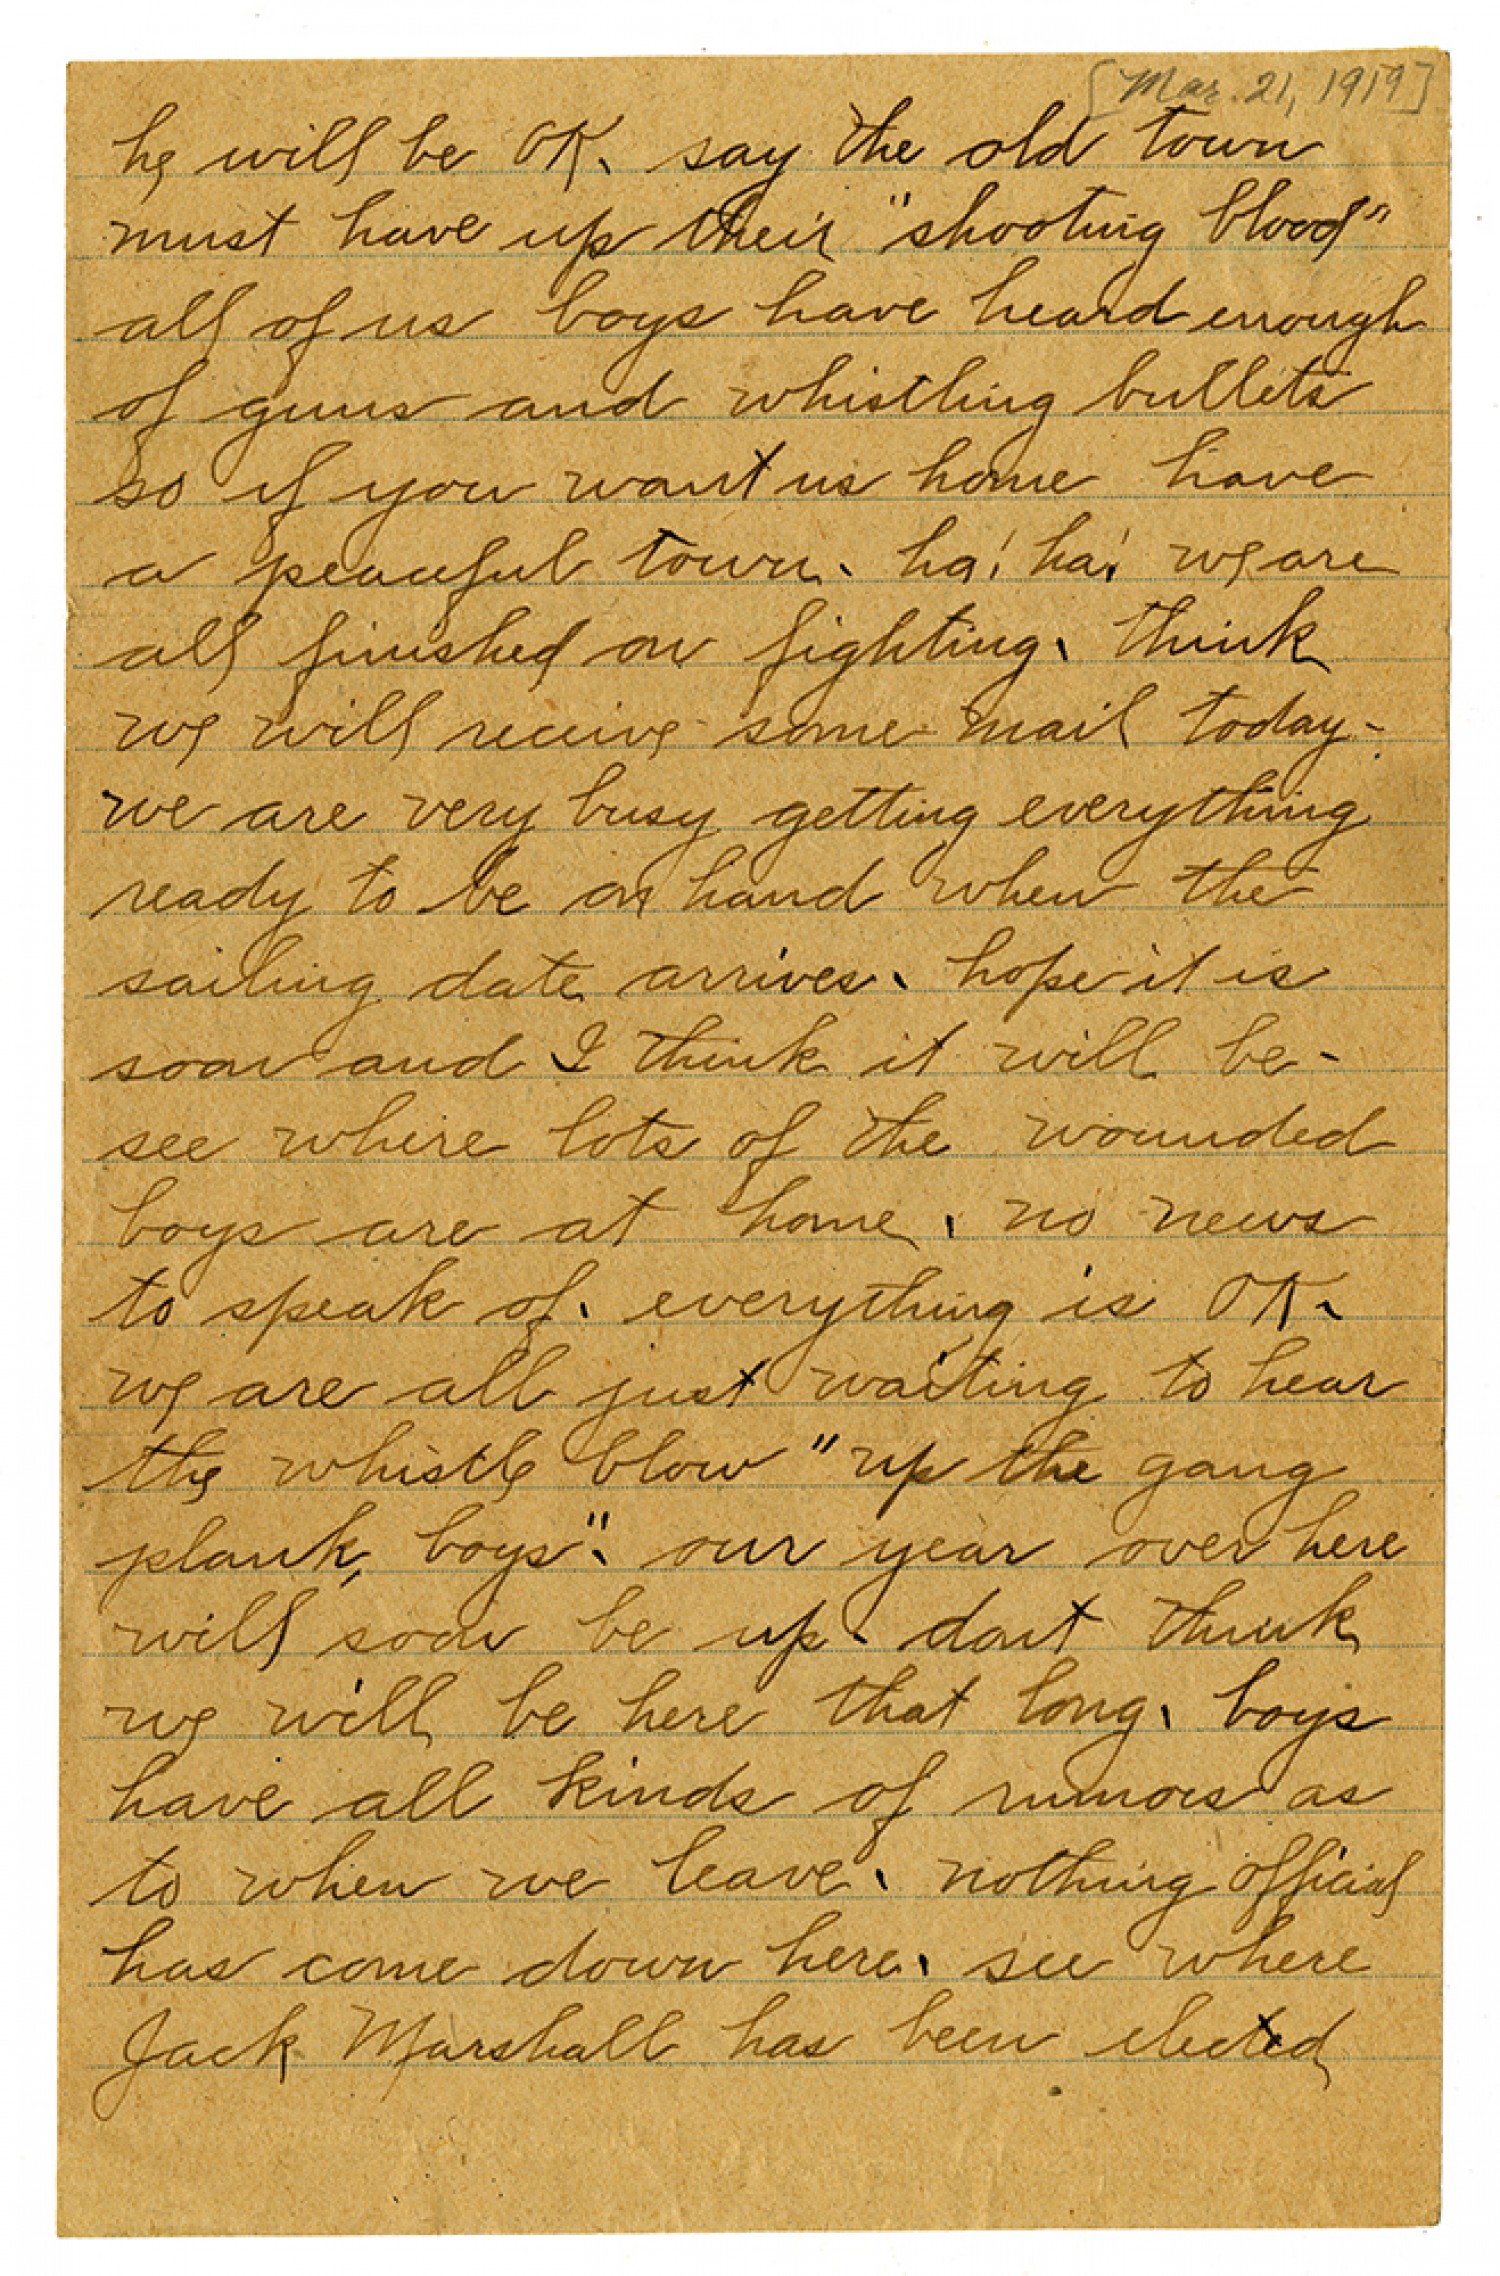 [Mar. 21, 1919]
he will be OK. say the old town
must have up their "shooting blood"
all of us boys have heard enough
of guns and whistling bullets
so if you want us home have
a peaceful town. ha! ha! we are
all finished on fighting. think
we will receive some mail today-
we are very busy getting everything
ready to be on hand when the
sailing date arrives. hope it is
soon and I think it will be-
see where lots of the wounded
boys are at home. no news
to speak of. everything is OK.
we are all just waiting to hear
the whistle blow "up the gang
plank, boys". our year over here
will soon be up. dont think
we will be here that long. boys
have all kinds of rumors as
to when we leave. nothing official
has come down here. see where
Jack Marshall has been elected